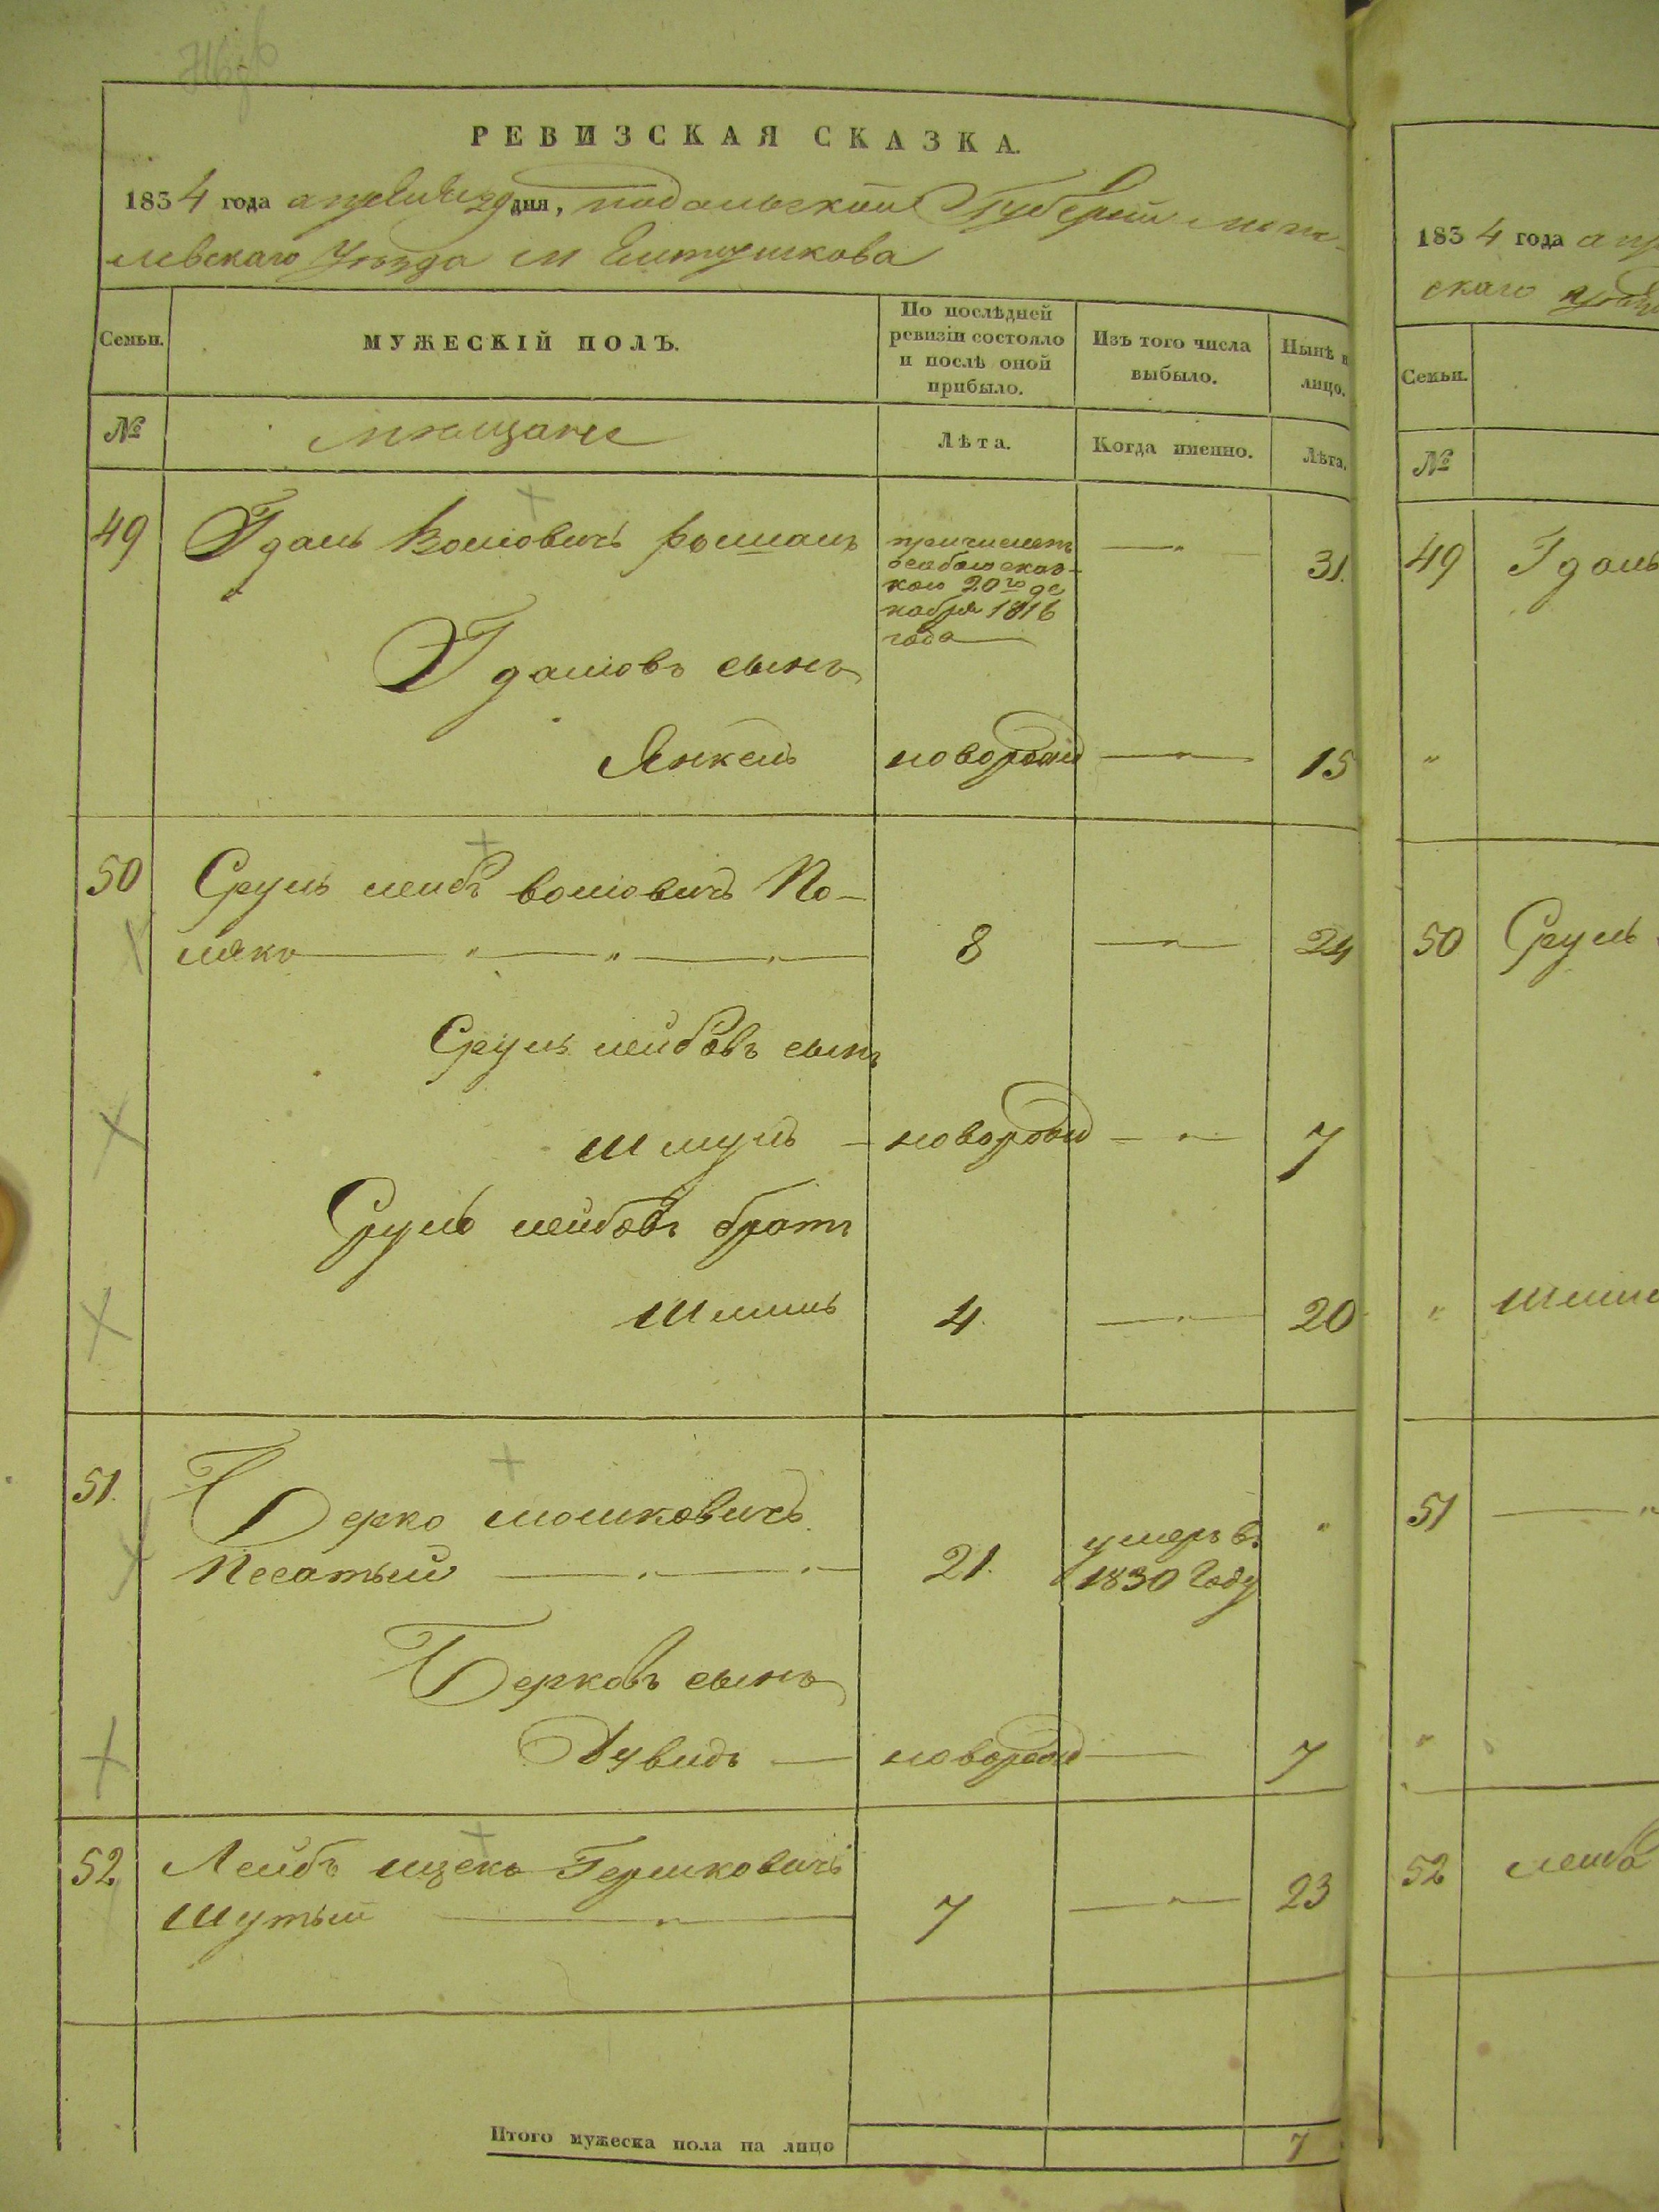 РЕВИЗСКАЯ СКАЗКА.
1834 года апреля 29 дня, подольской Губернии моги-
левскаго уезда м Елтушкова
Семьи.
МУЖЕСКІЙ ПОЛЪ.
По послѣдней
ревизіи состояло
и послѣ оной
прибыло.
Изъ того числа
выбыло.
Нынѣ н
лицо.
№
мещане
Лѣта.
Когда именно.
Лѣта.
49
Гдаль Волювичъ
причислен
особою сказ-
кою 20го де
кабря 1816
года
31.
Гдалювъ сынъ
Янкель
новорожд
15
50
Сруль лейбъ волювичъ По-
ляко
8
24
Сруль лейбовъ сынъ
Шмуль
новорожд
7
Сруль лейбовъ братъ
4.
20
51.
Берко мошковичъ
Песатый
21.
умеръ въ
1830 Году
Берковъ сынъ
Дувидъ
новорожд
7
52
Лейбъ ицекъ Гершковичъ
Шутый
7
23
Итого мужеска пола на лицо
7
1834 года апр
скаго
Семьи.
№
49
Гдаль
50
Сруль
51
52
лейба